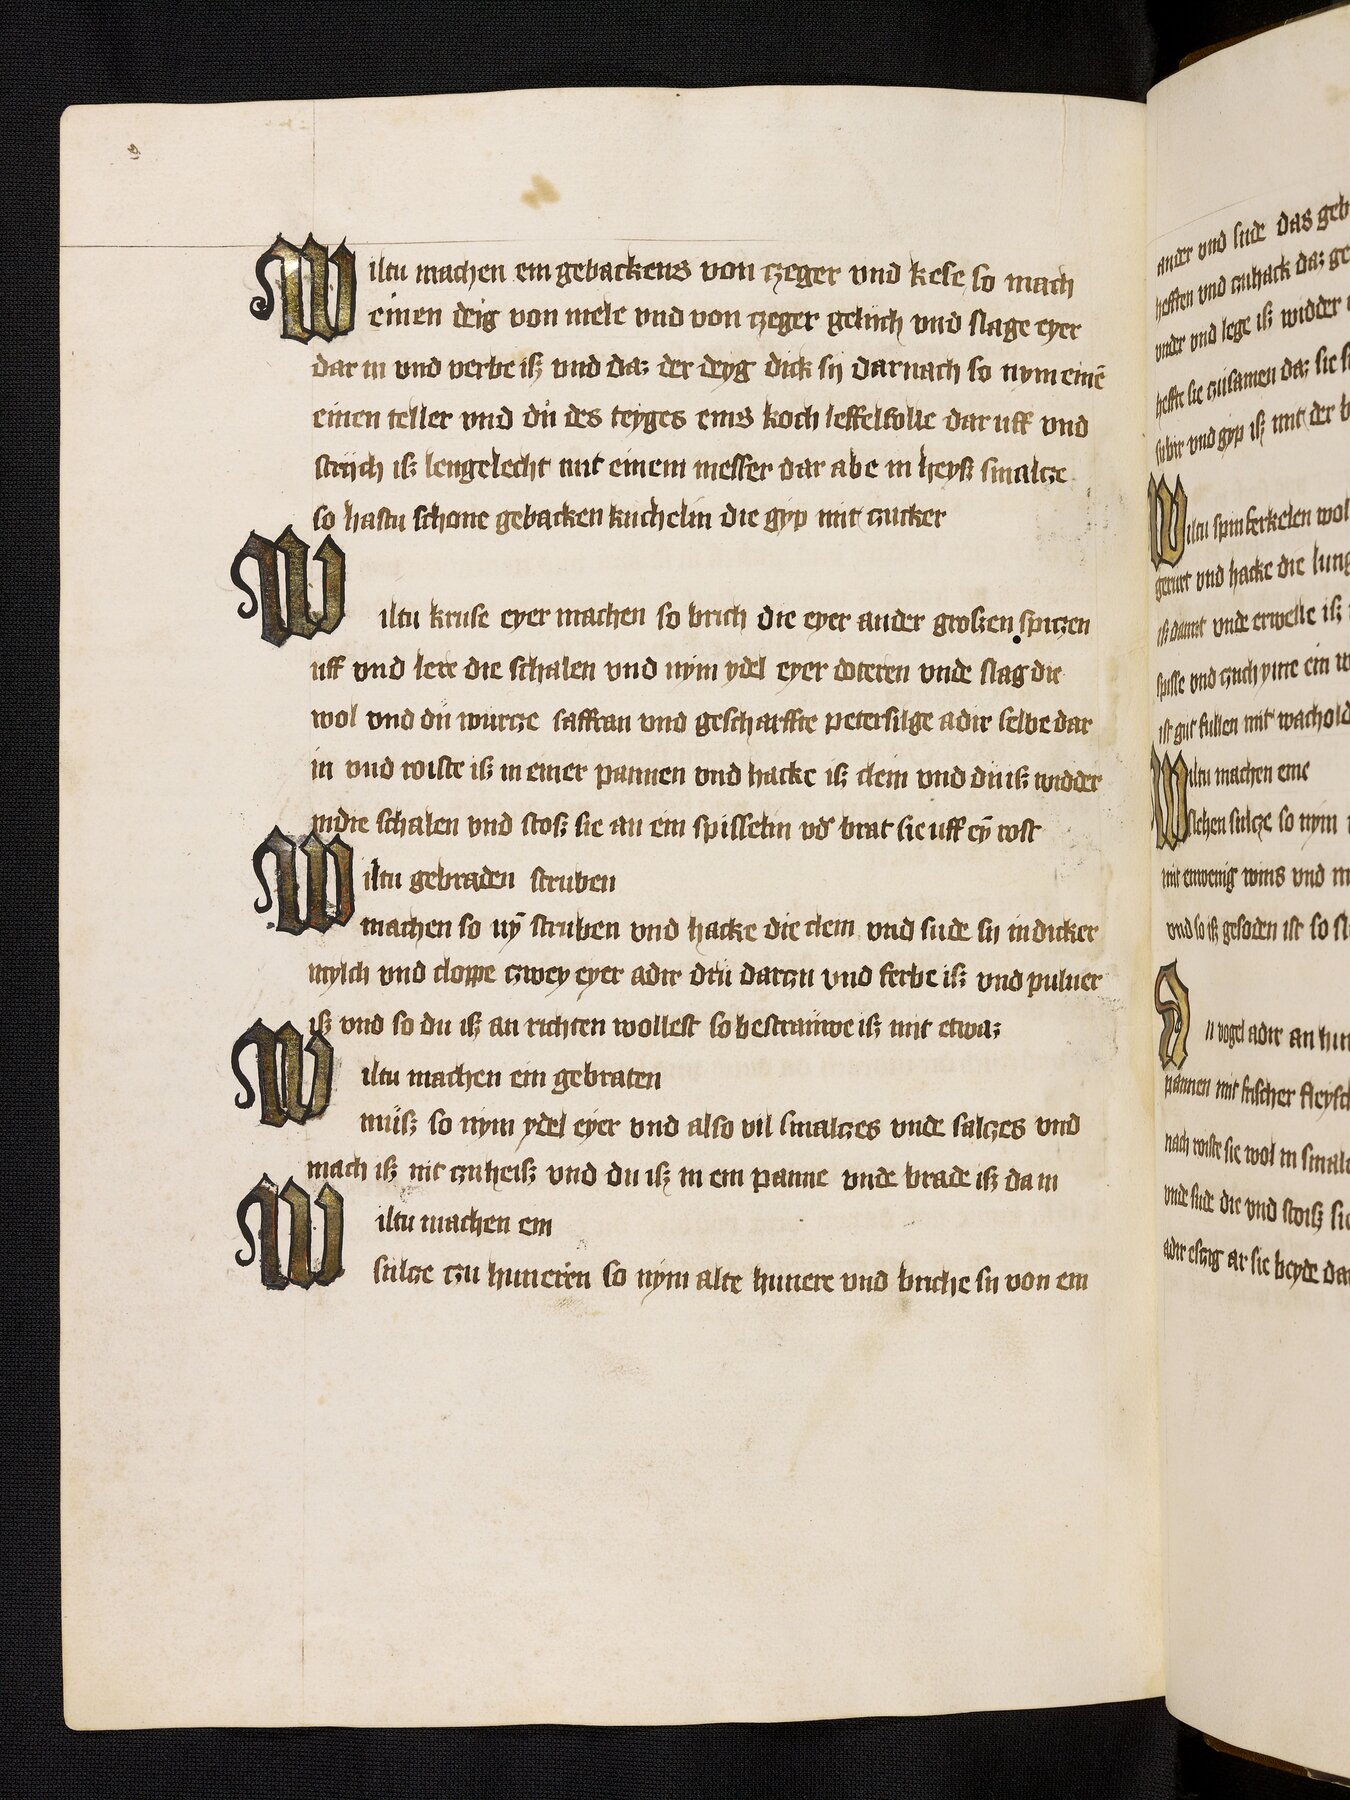 Wiltu machen ein gebackens von czeger vnd kese so mach
einen deig von mele vnd von czeger gelich vnd slage eyer
dar in vnd verbe iß vnd daz der deyg dick sij Darnach so nym einē
einen teller vnd dü des teyges eins koch leffelfolle dar uff vnd
strijch iß lengelecht mit einem messer dar abe in heyß smaltze
so hastu schone gebacken kuchelin die gyp mit zucker
Wiltu kruse eyer machen so brich die eyer ander großen spitzen
uff vnd lere die schalen vnd nym ydel eyer doteren vnde slag die
wol vnd dü wurcze saffran vnd gescharffte petersilge adir selbe dar
in vnd roiste iß in einer pannen vnd hacke iß clein vnd dü iß widder
in die schalen vnd stoß sie an ein spisselin vd brat sie uff eȳ rost
Wiltu gebraden struben
machen so nȳ struben vnd hacke die clein vnd sude sij in dicker
mylch vnd cloppe czwey eyer adir drü darczu vnd ferbe iß vnd puluer
iß vnd so du iß an richten wollest so bestrauwe iß mit etwaz
Wiltu machen ein gebraten
müß so nym ydel eyer vnd also vil smalczes vnde salczes vnd
mach iß nit czu heiß vnd du iß in ein panne vnde brade iß da in
Wiltu machen ein
sulcze czu huneren so nym alte hunere vnd briche sij von ein
ander vnd sude das geb
hefften vnd czuhack daz ge
vnder vnd lege iß widder
heffte sie czusamen daz sie
vnd gyp iß mit der b
Wiltu spinferkelen wol
vnd hacke die lung
iß damit vnde erwelle iß
spisse vnd czuch yme ein
ist gut fullen mit wachold
Wiltu machen eine
sulcze so nym
mit einwenig wins vnd
vnd so iß gesoden ist so
vogel adir an hun
pannen mit frischer fleysch
nach roiste sie wol in smalcz
vnde sude die vnd stoiß sie
adir eßig ar sie beyde